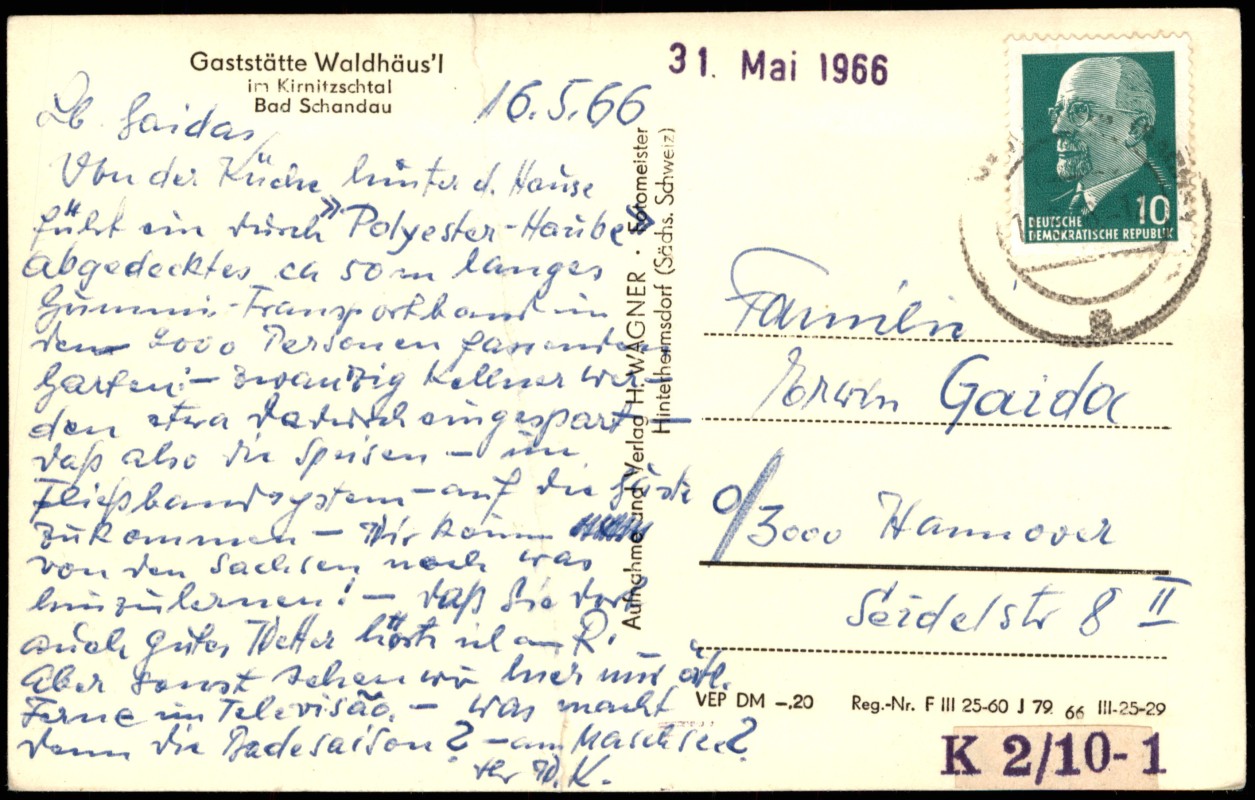 Gaststätte Waldhäus'l
im Kirnitzschtal
Bad Schandau
16.5.66
Lb. Gaidas,
Von der Küche hinter d. Hause
führt ein durch "Polyester-Haube"
abgedecktes ca 50 m langes
Gummi-Transportband in
den 2000 Personen fassenden
Garten! – zwanzig Kellner wer-
den etwa dadurch eingespart –
daß also die Speisen – im
Fließbandsystem – auf die Gäste
zukommen – Wir könn
von den Sachsen noch was
hinzulernen! – daß Sie dort
auch gutes Wetter hörte ich am R.
Aber sonst sehen wir hier nur
Ferne im Televisão. – was macht
denn die Badesaison? – am Maschsee?
Ihr W. K.
Aufnahme und Verlag H. WAGNER · Fotomeister
Hinterhermsdorf (Sächs. Schweiz)
31. Mai 1966
10
DEUTSCHE
DEMOKRATISCHE REPUBLIK
Familie
Erwin Gaida
3000 Hannover
Seidelstr 8 II
VEP DM –.20 Reg.-Nr. F III 25-60 J 79 66 III-25-29
K 2/10-1